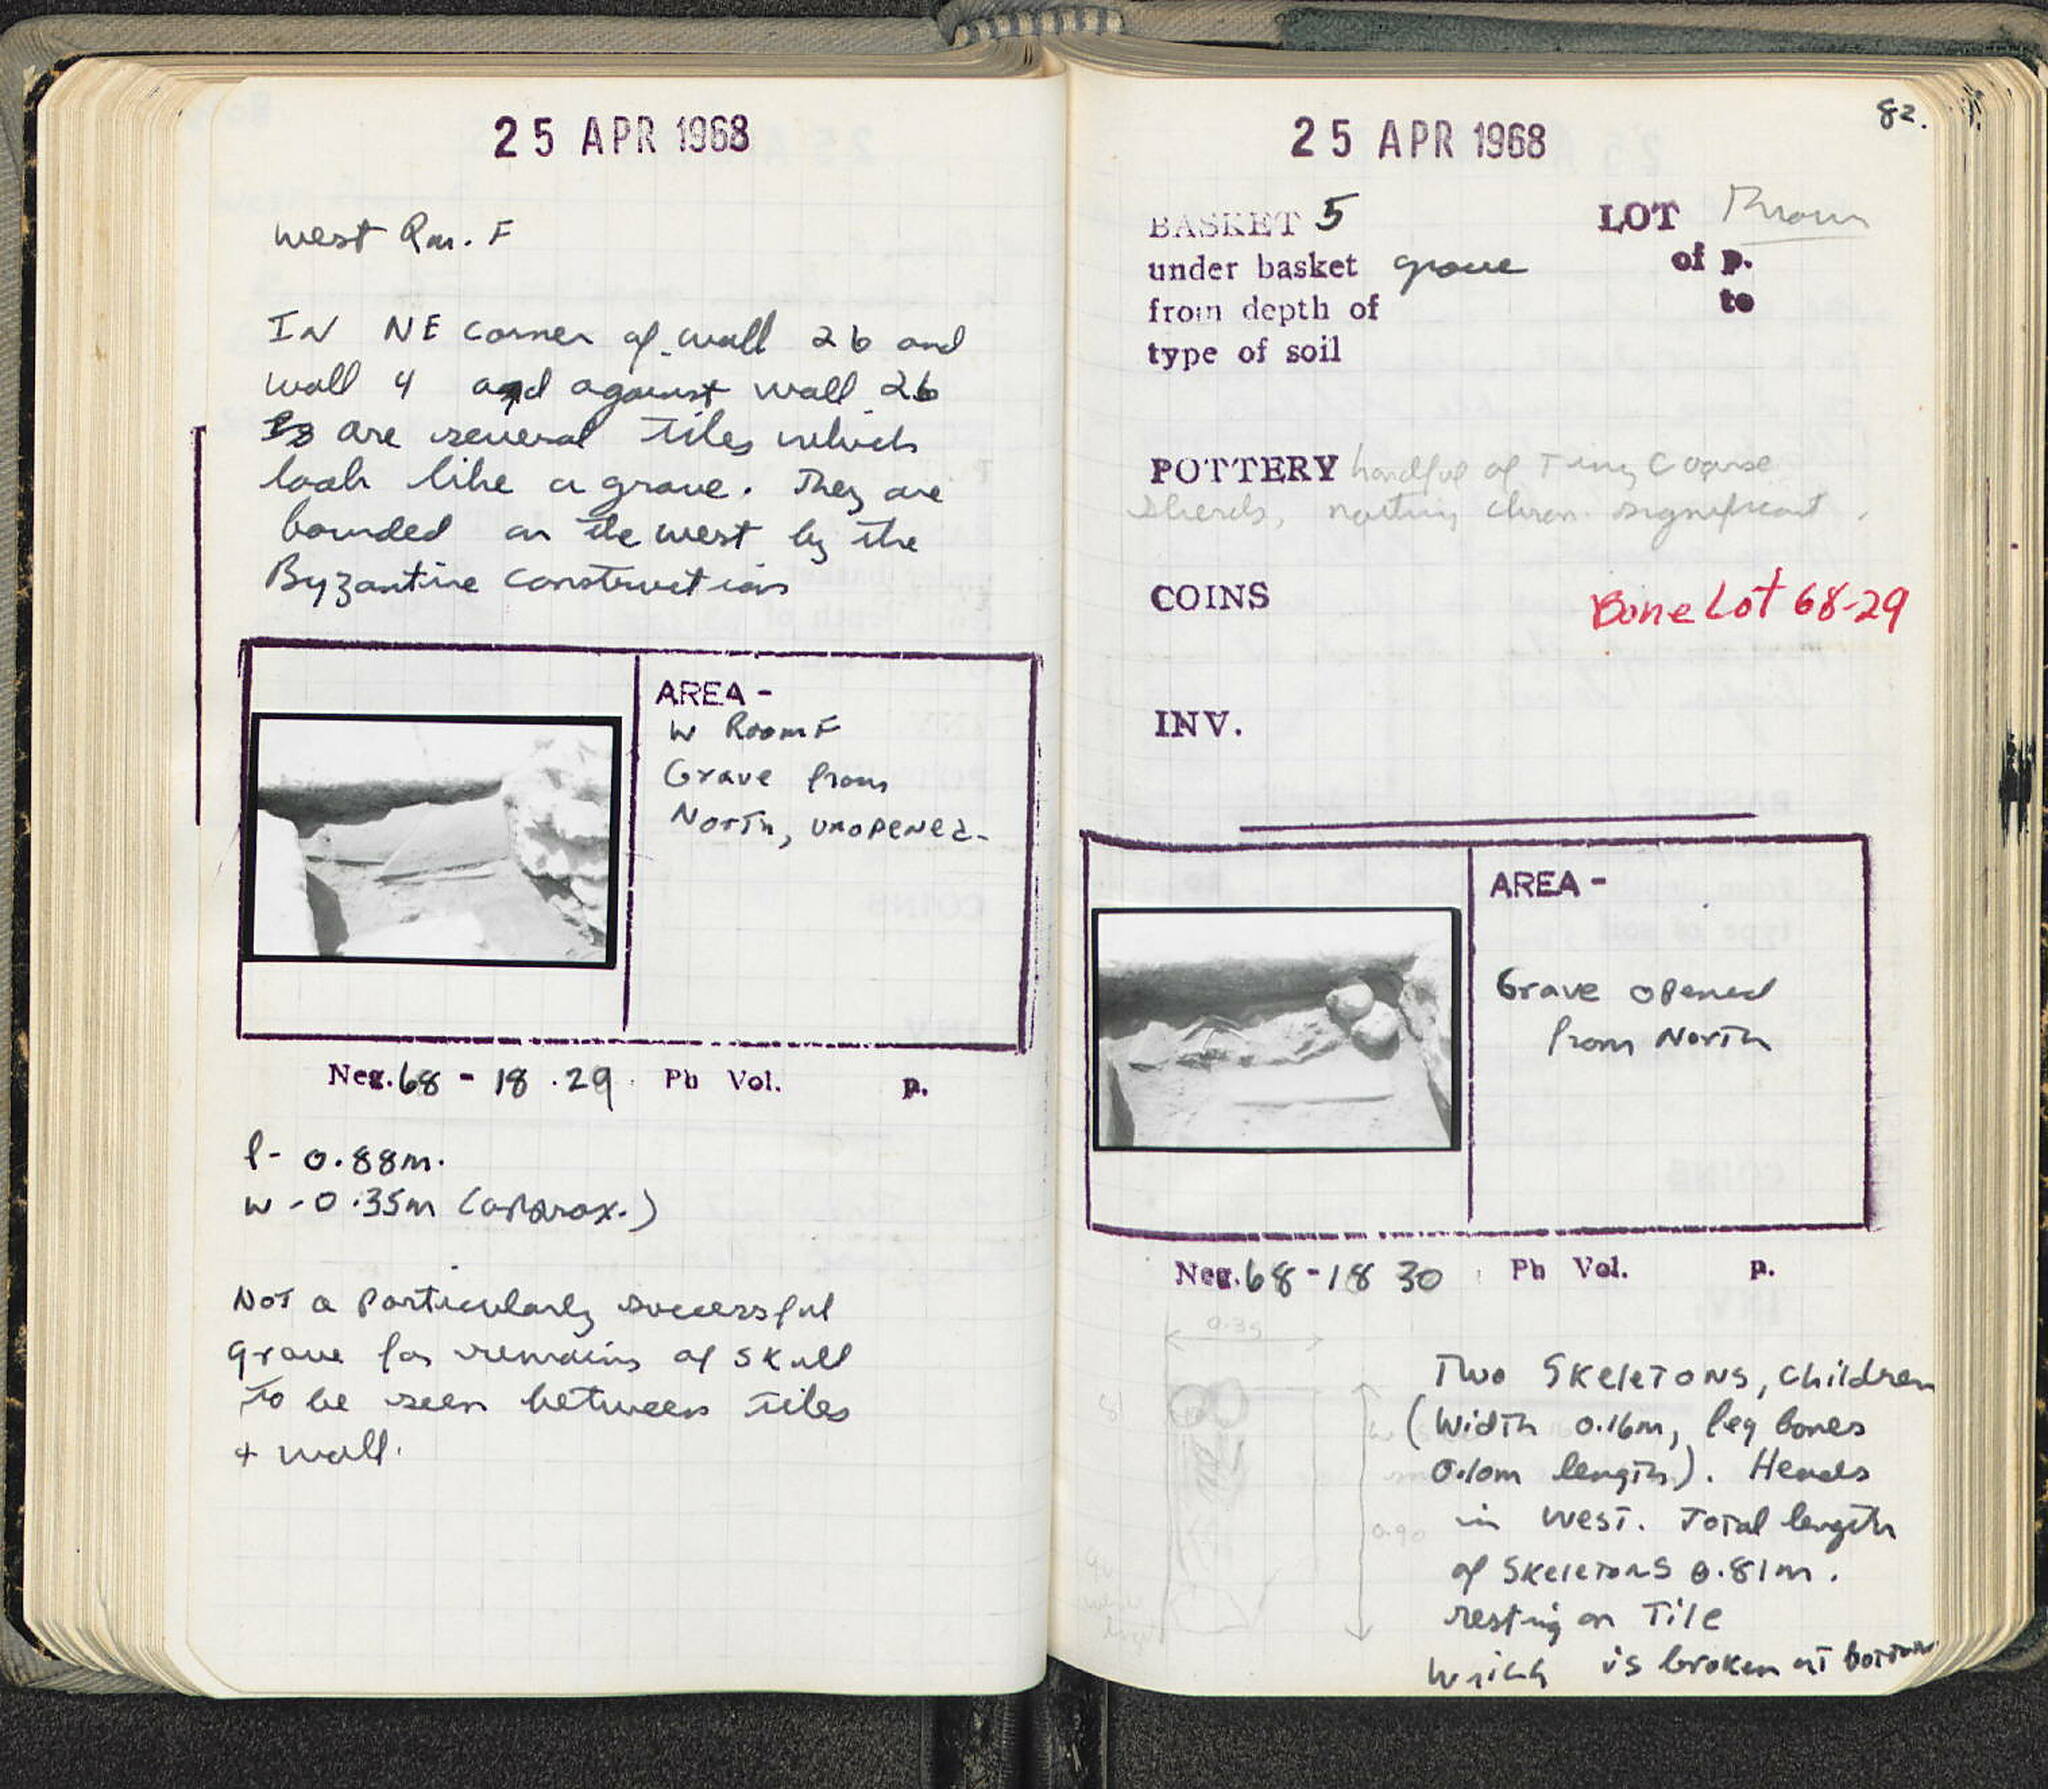 25 APR 1968
West Rm. F
IN NE corner of wall 26 and
wall 4 and against wall 26
are several tiles which
look like a grave. They are
bounded on the west by the
Byzantine construction
AREA -
W Room F
Grave from
North, unopened-
Neg. 68 - 18 . 29 Ph Vol. p.
l- 0.88m.
w - 0.35m (approx.)
Not a particularly successful
grave for remains of skull
to be seen between tiles
+ wall.
82.
25 APR 1968
BASKET 5 LOT Thrown
under basket grave of p.
from depth of to
type of soil
POTTERY handful of Tiny Coarse
sherds, nothing chron. significant.
COINS
Bone Lot 68-29
INV.
AREA -
Grave opened
from North
Neg. 68 - 18 30 Ph Vol. p.
0.35
Two Skeletons, children
(width 0.16m, leg bones
0.10m length). Heads
in west. Total length
of skeletons 0.81m.
resting on Tile
which is broken at bottom
0.90